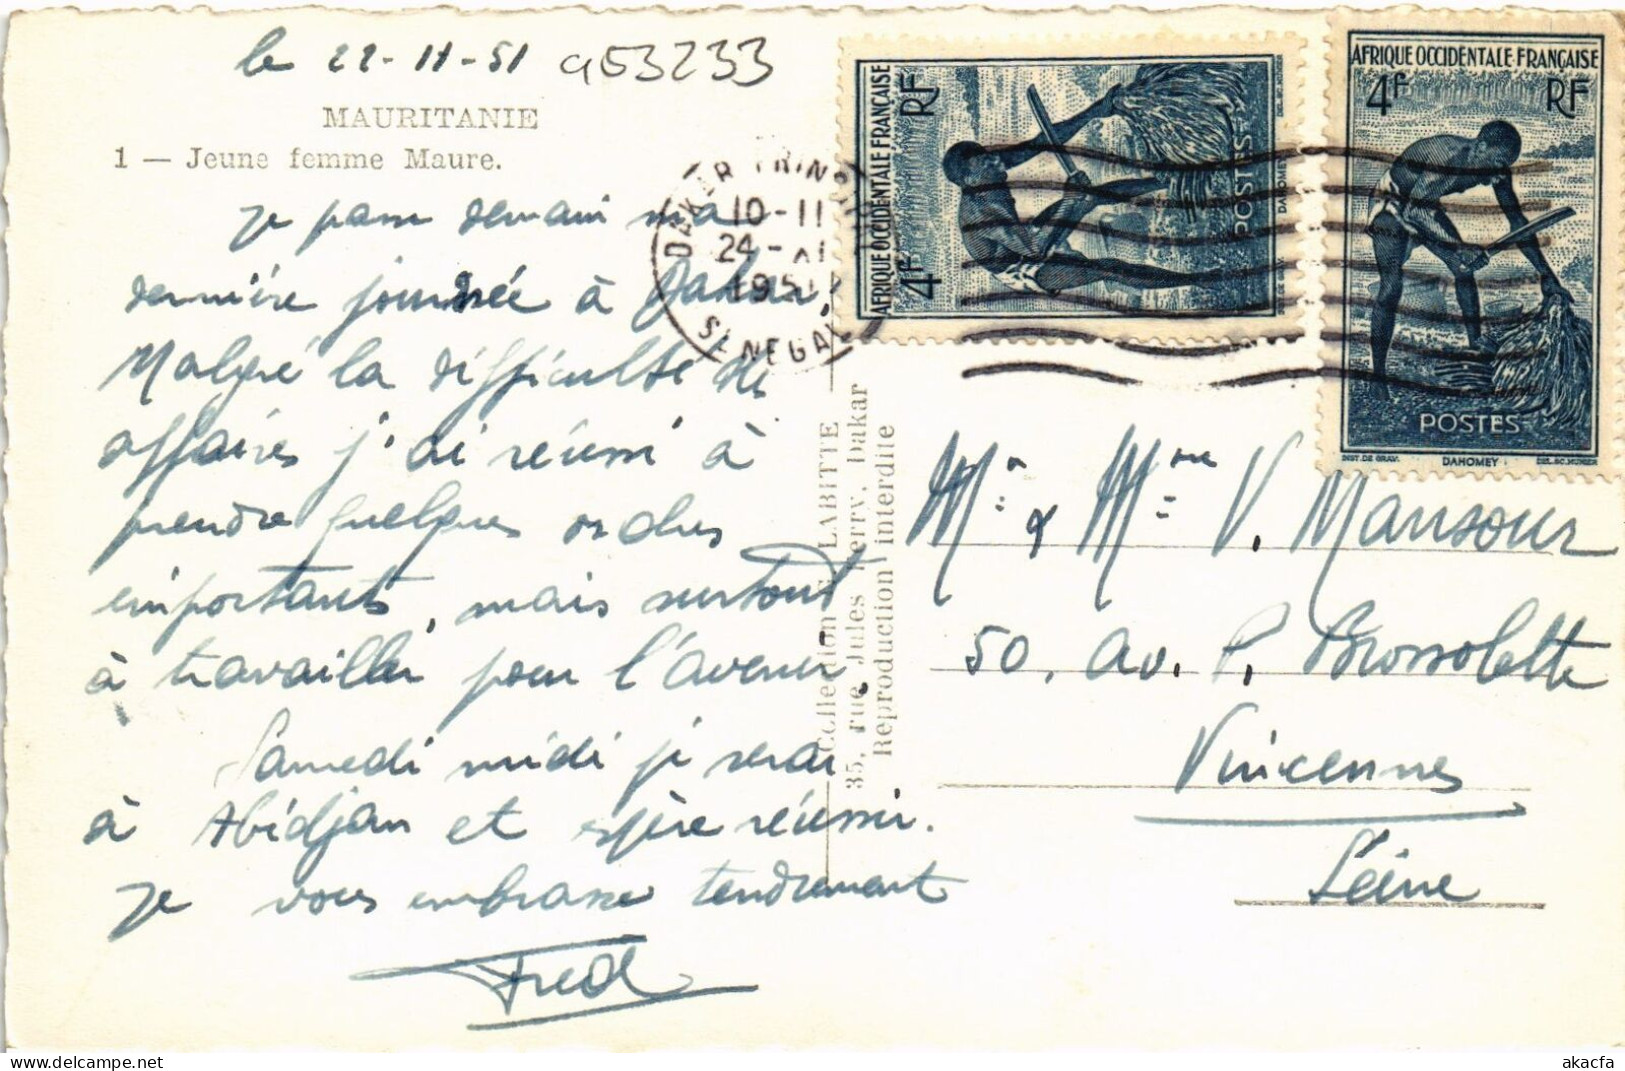 le 22-11-51 953233
MAURITANIE
1 — Jeune femme Maure.
Je passe demain ma
dernière journée à Dakar,
Malgré la difficulté des
affaires j'ai réussi à
prendre quelques ordres
importants, mais surtout
à travailler pour l'avenir
Samedi midi je serai
à Abidjan et espère réussir.
Je vous embrasse tendrement
Fred
DAKAR PRINCIPAL
10-11
24 - XI
1951
SENEGAL
AFRIQUE OCCIDENTALE FRANÇAISE
4F RF
POSTES
DAHOMEY
AFRIQUE OCCIDENTALE FRANÇAISE
4F RF
POSTES
INST. DE GRAV. DAHOMEY
Collection LABITTE
35, rue Jules Ferry, Dakar
Reproduction interdite
Mr & Mme V. Mansour
50, av. P. Brossolette
Vincennes
Seine
akacfa